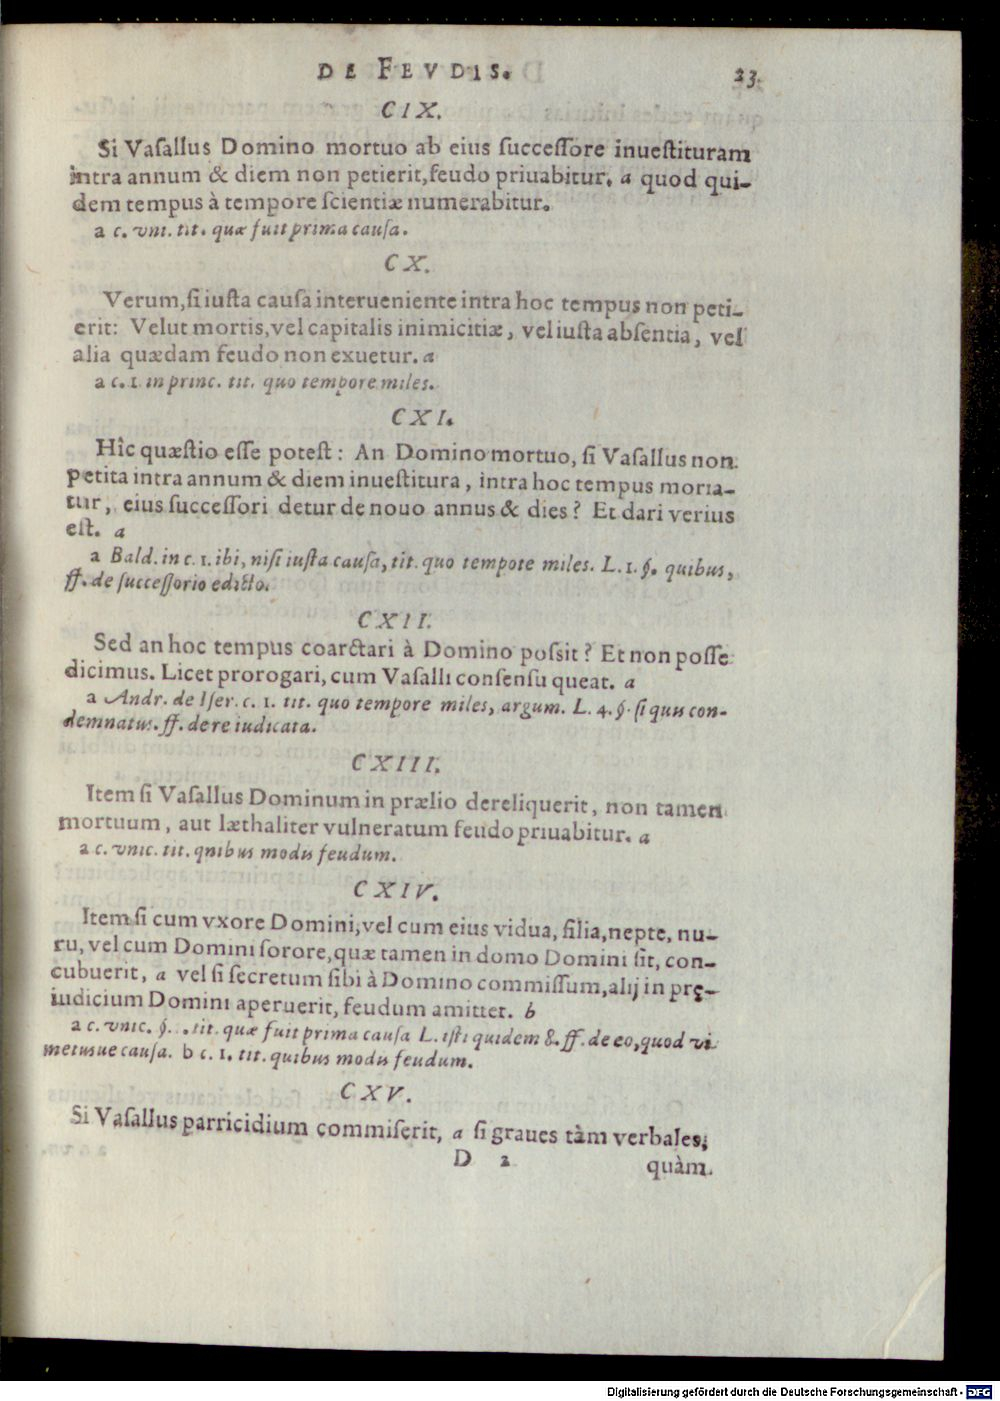 DE FEVDIS. 23.
CIX.
Si Vaſallus Domino mortuo ab eius ſucceſſore inueſtituram
intra annum & diem non petierit, feudo priuabitur. a quod qui-
dem tempus à tempore ſcientiæ numerabitur.
a c. vni. tit. quæ fuit prima cauſa.
CX.
Verum, ſi iuſta cauſa interueniente intra hoc tempus non peti-
erit: Velut mortis, vel capitalis inimicitiæ, vel iuſta abſentia, vel
alia quædam feudo non exuetur. a
a c. 1. in princ. tit. quo tempore miles.
CXI.
Hîc quæſtio eſſe poteſt: An Domino mortuo, ſi Vaſallus non
petita intra annum & diem inueſtitura, intra hoc tempus moria-
tur, eius ſucceſſori detur de nouo annus & dies? Et dari verius
eſt. a
a Bald. in c. 1. ibi, niſi iuſta cauſa, tit. quo tempote miles. L. 1. §. quibus,
ff. de ſucceſſorio edicto.
CXII.
Sed an hoc tempus coarctari à Domino poſsit? Et non poſſe
dicimus. Licet prorogari, cum Vaſalli conſenſu queat. a
a Andr. de Iſer. c. 1. tit. quo tempore miles, argum. L. 4. §. ſi quis con-
demnatus. ff. de re iudicata.
CXIII.
Item ſi Vaſallus Dominum in prælio dereliquerit, non tamen
mortuum, aut læthaliter vulneratum feudo priuabitur. a
a c. vnic. tit. qnibus modis feudum.
CXIV.
Item ſi cum vxore Domini, vel cum eius vidua, filia, nepte, nu-
ru, vel cum Domini ſorore, quæ tamen in domo Domini ſit, con-
cubuerit, a vel ſi ſecretum ſibi à Domino commiſſum, alij in prę-
iudicium Domini aperuerit, feudum amittet. b
a c. vnic. §. . tit. quæ fuit prima cauſa L. iſti quidem 8. ff. de eo, quod vi
metusue cauſa. b c. 1. tit. quibus modis feudum.
CXV.
Si Vaſallus parricidium commiſerit, a ſi graues tàm verbales,
D 2 quàm
Digitalisierung gefördert durch die Deutsche Forschungsgemeinschaft - DFG